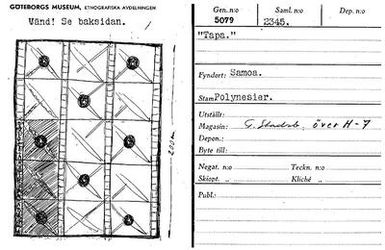 GÖTEBORGS MUSEUM, ETNOGRAFISKA AVDELNINGEN
Vänd! Se baksidan.
200 cm
Gen. n:o
Saml. n:o
Dep. n:o
5079
2345.
"Tapa."
Fyndort: Samoa.
Stam Polynesier.
Utställt:
Magasin: över H-7
Depon.:
Byte till:
Negat. n:o
Teckn. n:o
Skiopt. „
Kliché „
Publ.: